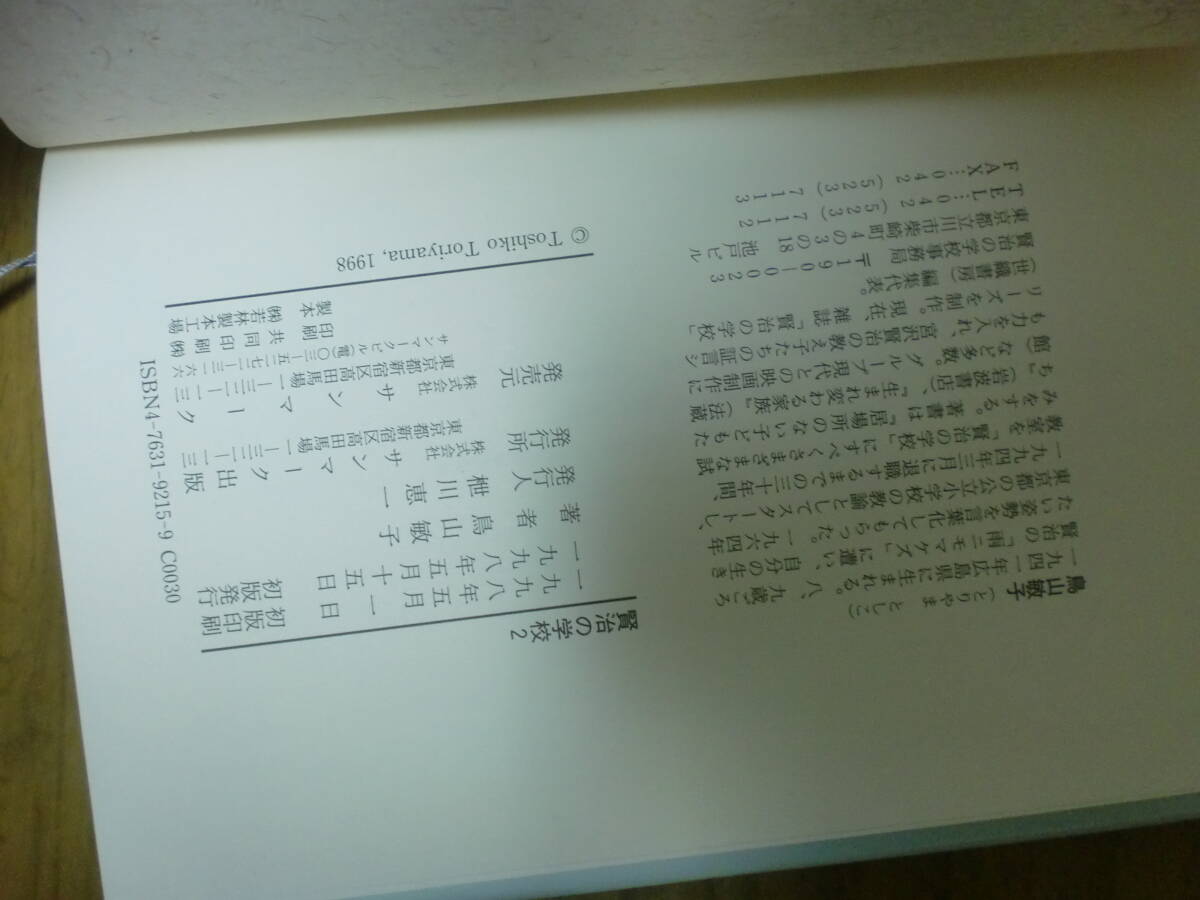 鳥山敏子（とりやま としこ）
一九四一年広島県に生まれる。八、九歳ごろ
賢治の「雨ニモマケズ」に遭い、自分の生き
たい姿勢を言葉化してもらった。一九六四年
東京都の公立小学校の教諭としてスタートし、
一九九四年三月に退職するまでの三十年間、
教室を「賢治の学校」にすべくさまざまな試
みをする。著書は『居場所のない子どもた
ち』（岩波書店）、『生まれ変わる家族』（法蔵
館）など多数。グループ現代との映画制作に
も力を入れ、宮沢賢治の教え子たちの証言シ
リーズを制作。現在、雑誌「賢治の学校」
（世織書房）編集代表。
賢治の学校事務局 〒190-0023
東京都立川市柴崎町4の3の18 池戸ビル
TEL…042（523）7112
FAX…042（523）7113
賢治の学校2
一九九八年五月一日 初版印刷
一九九八年五月十五日 初版発行
著者 鳥山敏子
発行人 枻川恵一
発行所 株式会社 サンマーク出版
東京都新宿区高田馬場
発売元 株式会社 サンマーク
東京都新宿区高田馬場
サンマークビル
印刷 共同印刷㈱
製本 ㈱若林製本工場
© Toshiko Toriyama, 1998
ISBN4-7631-9215-9 C0030